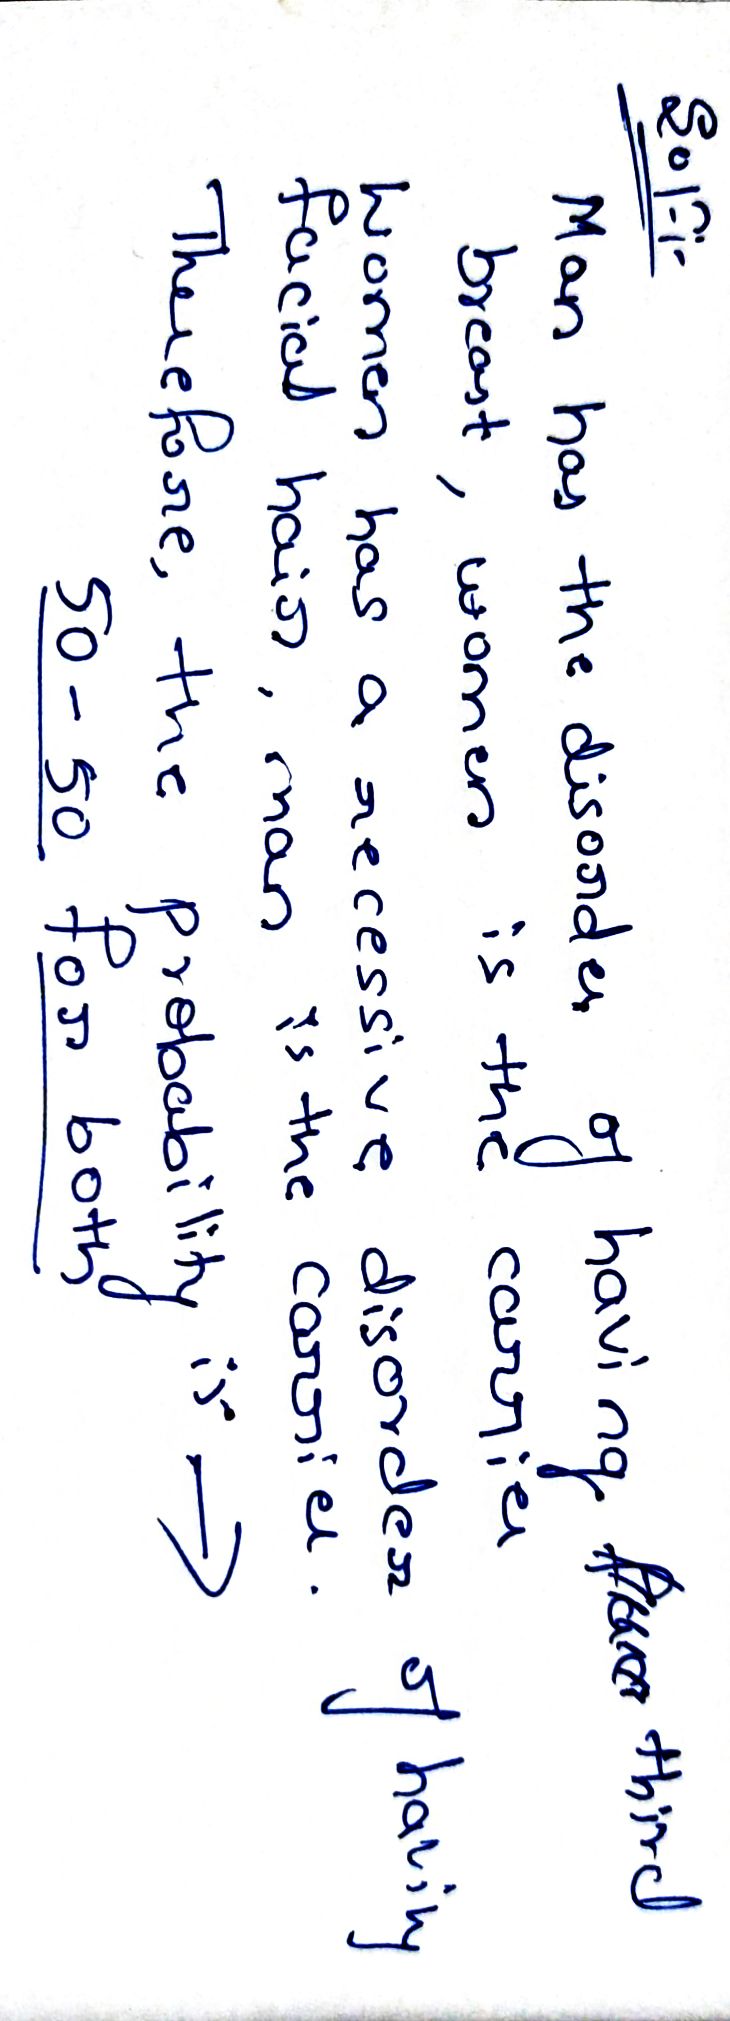 Soln:-
Man has the disorder of having third
breast, women is the carrier
Women has a recessive disorder of having
facial hair, man is the carrier.
Therefore, the probability is →
50-50 for both